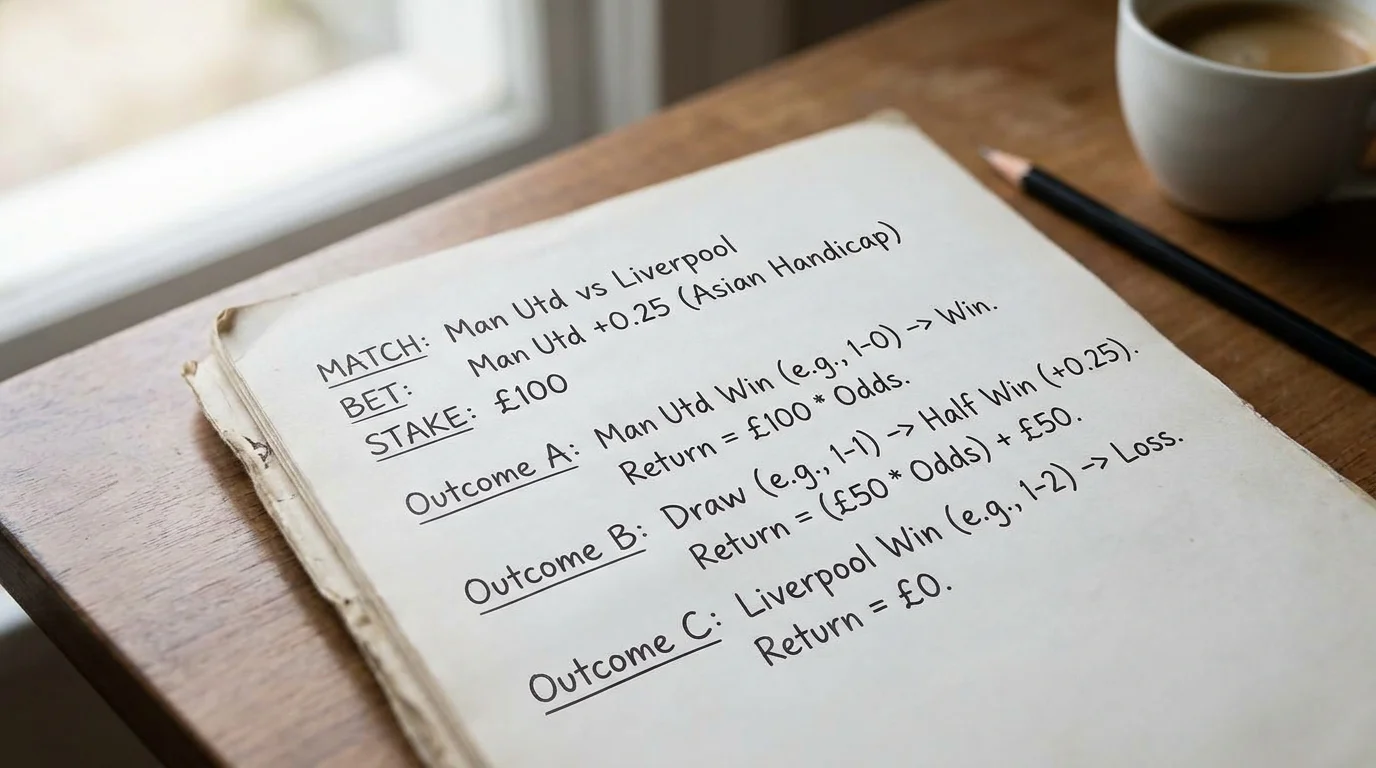 MATCH: Man Utd vs Liverpool
BET: Man Utd +0.25 (Asian Handicap)
STAKE: £100
Outcome A: Man Utd Win (e.g., 1-0) -> Win.
Return = £100 * Odds.
Outcome B: Draw (e.g., 1-1) -> Half Win (+0.25).
Return = (£50 * Odds) + £50.
Outcome C: Liverpool Win (e.g., 1-2) -> Loss.
Return = £0.